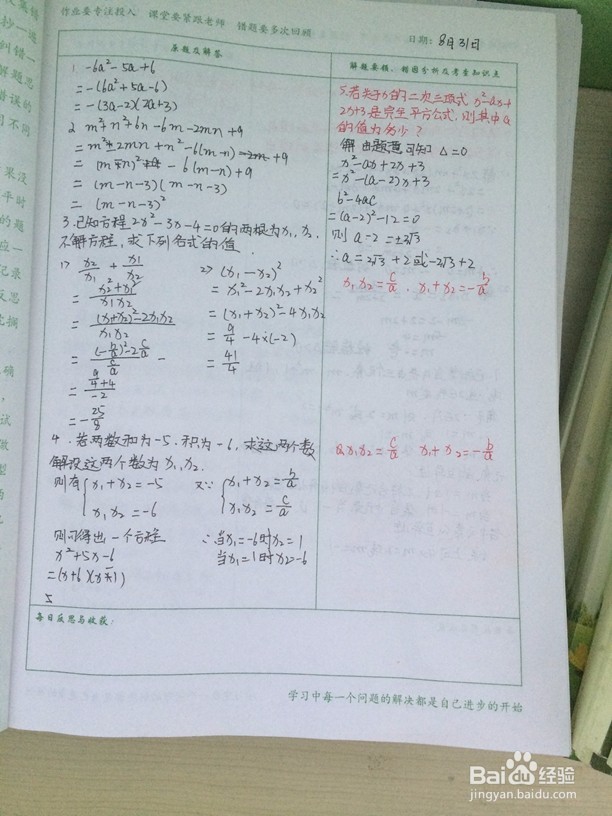 作业要专注投入 课堂要紧跟老师 错题要多次回顾
日期: 8月31日
原题及解答
解题要领、错因分析及考查知识点
1. -6a²-5a+6
=-(6a²+5a-6)
=-(3a-2)(2a+3)
2. m²+n²+6n-6m-2mn+9
=m²-2mn+n²-6(m-n)+9
=(m-n)²-6(m-n)+9
=(m-n-3)(m-n-3)
=(m-n-3)²
3.已知方程2x²-3x-4=0的两根为x₁,x₂.
不解方程,求下列各式的值
1) x₂/x₁ + x₁/x₂
=(x₂²+x₁²)/(x₁x₂)
=((x₁+x₂)²-2x₁x₂)/(x₁x₂)
=((-b/a)²-2c/a)/(c/a)
=(9/4+4)/(-2)
=-25/8
2) (x₁-x₂)²
=x₁²-2x₁x₂+x₂²
=(x₁+x₂)²-4x₁x₂
=9/4-4×(-2)
=41/4
4.若两数和为-5.积为-6,求这两个数
解设这两个数为x₁,x₂.
则有{x₁+x₂=-5
x₁x₂=-6
又∵{x₁+x₂=-b/a
x₁x₂=c/a
则可得出一个方程
x²+5x-6
=(x+6)(x-1)
∴当x₁=-6时x₂=1
当x₁=1时x₂=-6
5
5.若关于x的二次三项式x²-ax+
2x+3是完全平方公式,则其中a
的值为多少?
解由题意可知△=0
x²-ax+2x+3
=x²-(a-2)x+3
b²-4ac
=(a-2)²-12=0
则a-2=±2√3
∴a=2√3+2或-2√3+2
x₁x₂=c/a. x₁+x₂=-b/a
x₁x₂=c/a x₁+x₂=-b/a
每日反思与收获:
学习中每一个问题的解决都是自己进步的开始
Baidu经验
jingyan.baidu.com